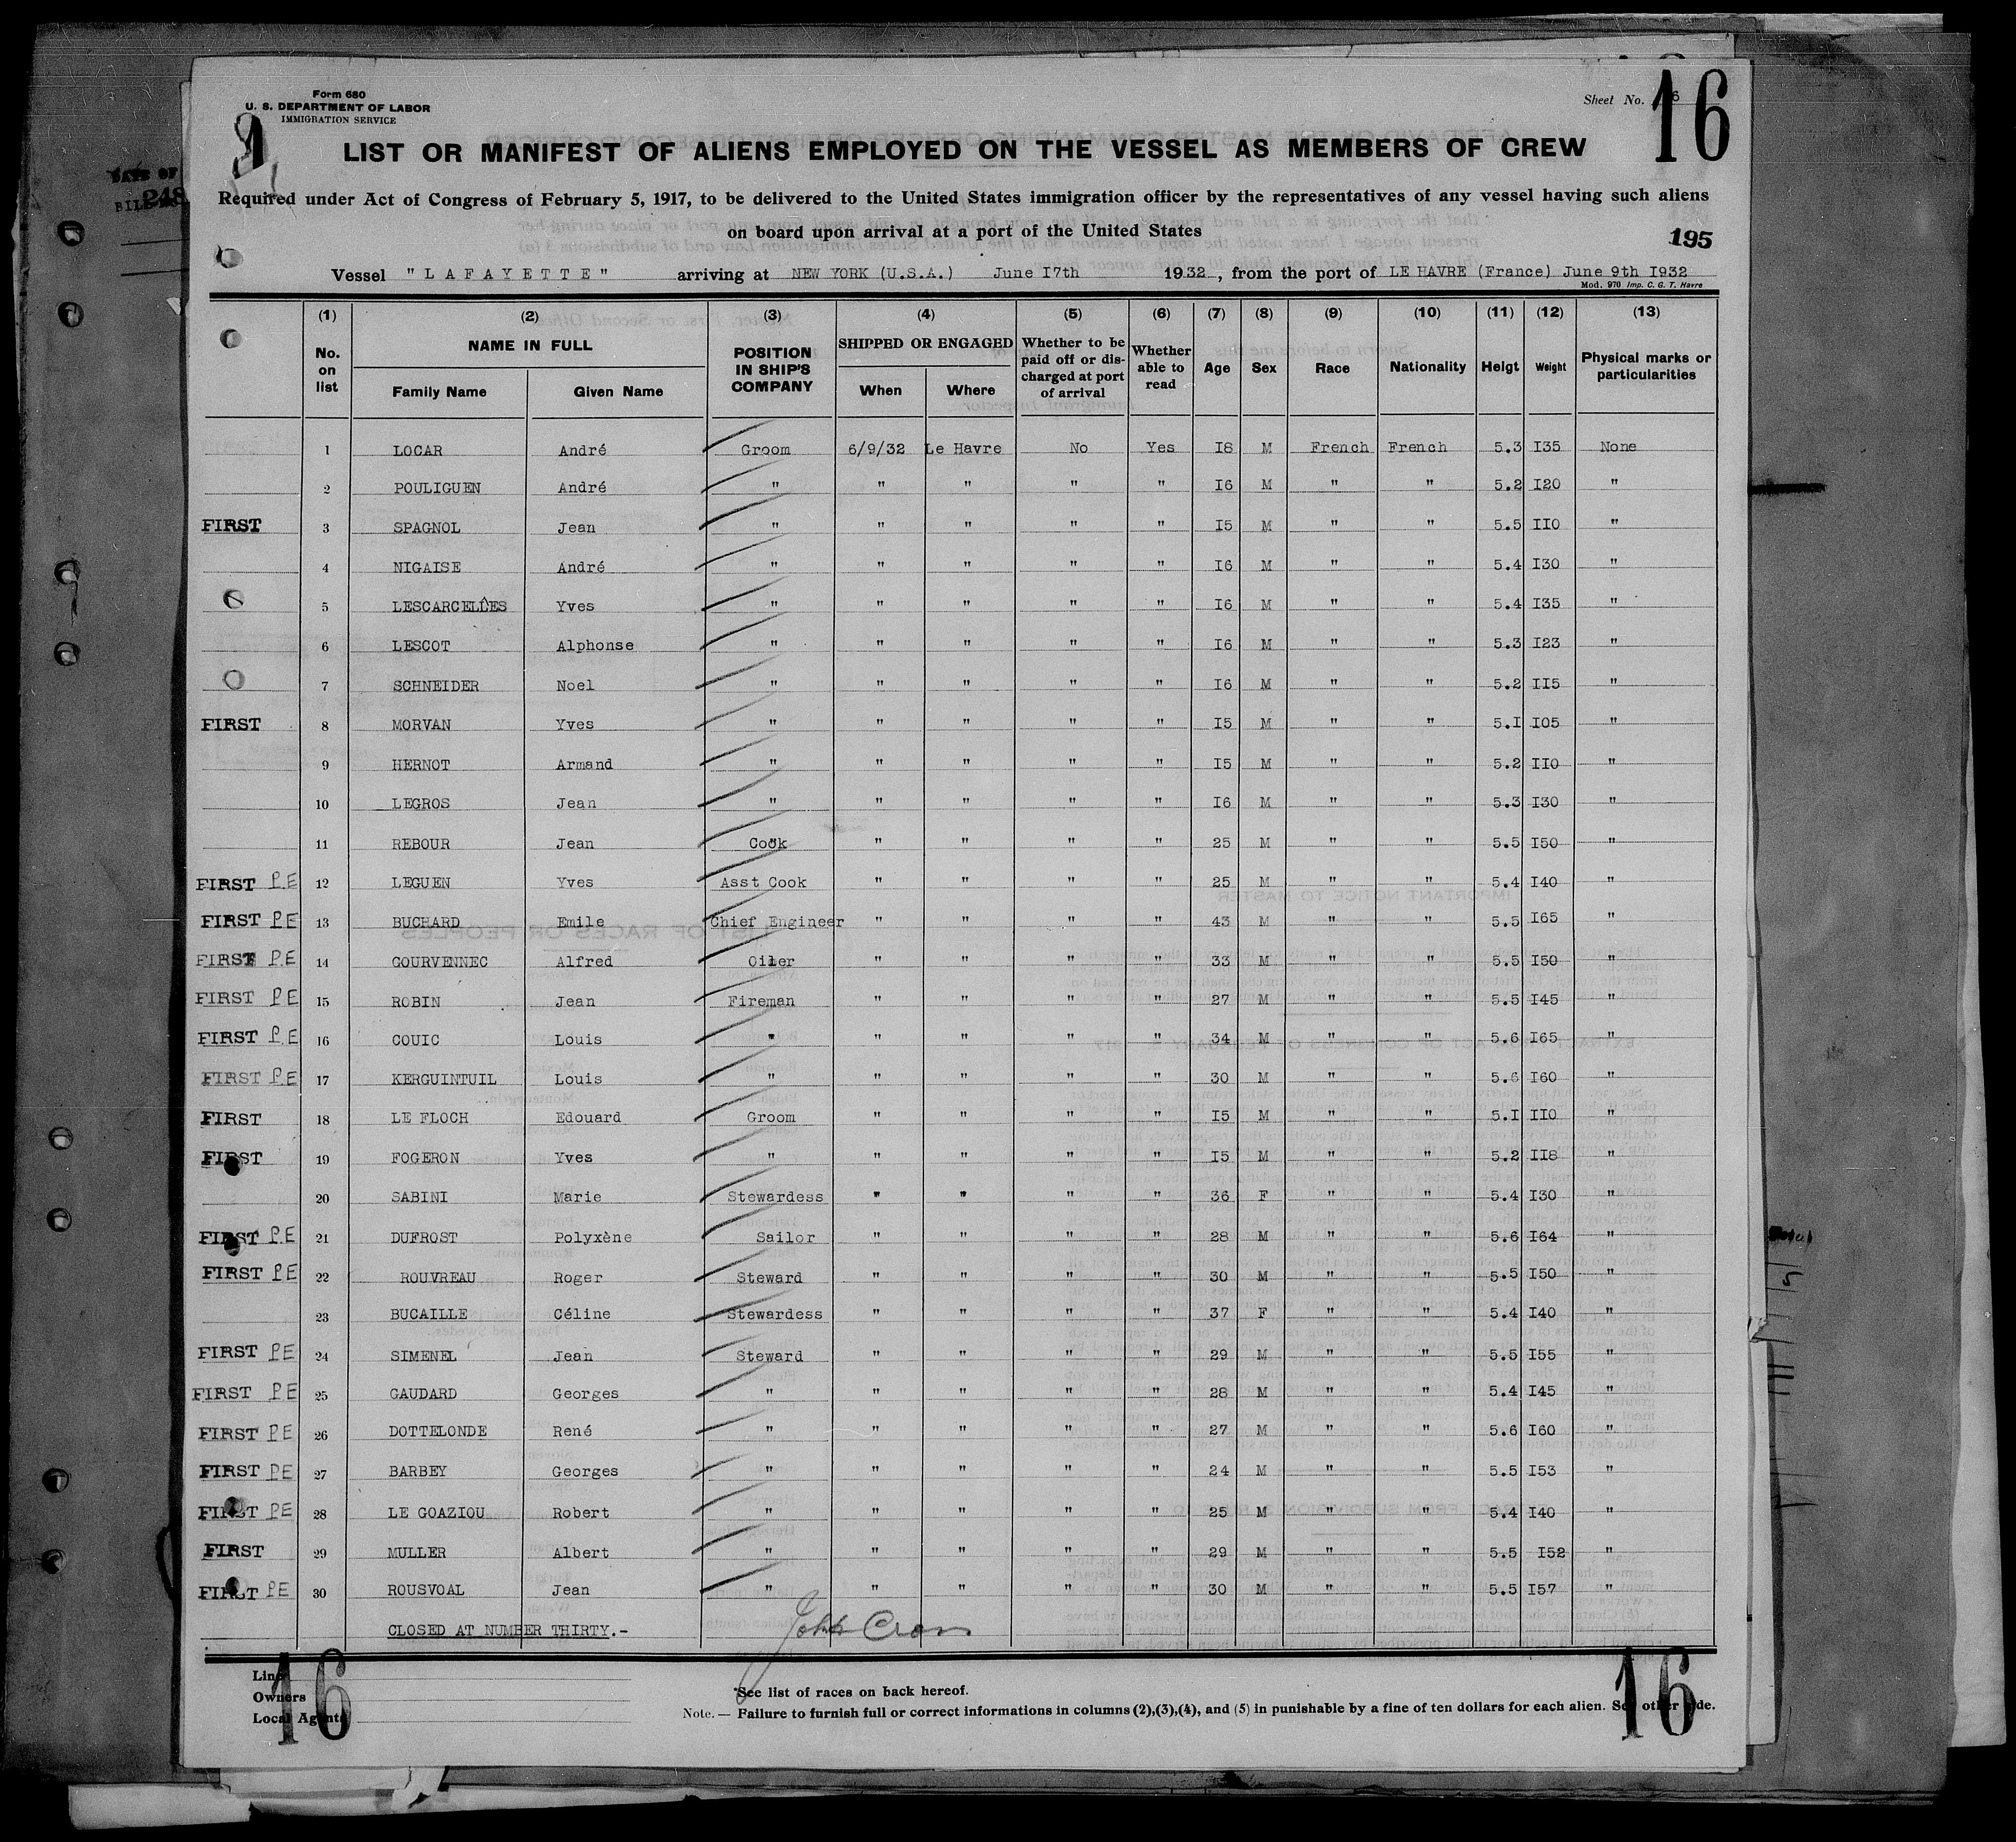 Form 680
U. S. DEPARTMENT OF LABOR
IMMIGRATION SERVICE
Sheet No. 16
16
LIST OR MANIFEST OF ALIENS EMPLOYED ON THE VESSEL AS MEMBERS OF CREW
Required under Act of Congress of February 5, 1917, to be delivered to the United States immigration officer by the representatives of any vessel having such aliens
on board upon arrival at a port of the United States
195
248
Vessel "LAFAYETTE" arriving at NEW YORK (U.S.A.) June I7th 1932, from the port of LE HAVRE (France) June 9th I932
Mod. 970 Imp. C. G. T. Havre
(1) (2) (3) (4) (5) (6) (7) (8) (9) (10) (11) (12) (13)
No. on list NAME IN FULL Family Name Given Name POSITION IN SHIP'S COMPANY SHIPPED OR ENGAGED When Where Whether to be paid off or discharged at port of arrival Whether able to read Age Sex Race Nationality Helgt Weight Physical marks or particularities
1 LOCAR André Groom 6/9/32 Le Havre No Yes I8 M French French 5.3 I35 None
2 POULIGUEN André " " " " " I6 M " " 5.2 I20 "
FIRST 3 SPAGNOL Jean " " " " " I5 M " " 5.5 II0 "
4 NIGAISE André " " " " " I6 M " " 5.4 I30 "
5 LESCARCELLES Yves " " " " " I6 M " " 5.4 I35 "
6 LESCOT Alphonse " " " " " I6 M " " 5.3 I23 "
7 SCHNEIDER Noel " " " " " I6 M " " 5.2 II5 "
FIRST 8 MORVAN Yves " " " " " I5 M " " 5.I I05 "
9 HERNOT Armand " " " " " I5 M " " 5.2 II0 "
10 LEGROS Jean " " " " " I6 M " " 5.3 I30 "
11 REBOUR Jean Cook " " " " 25 M " " 5.5 I50 "
FIRST PE 12 LEGUEN Yves Asst Cook " " " " 25 M " " 5.4 I40 "
FIRST PE 13 BUCHARD Emile Chief Engineer " " " " 43 M " " 5.5 I65 "
FIRST PE 14 GOURVENNEC Alfred Oiler " " " " 33 M " " 5.5 I50 "
FIRST PE 15 ROBIN Jean Fireman " " " " 27 M " " 5.5 I45 "
FIRST PE 16 COUIC Louis " " " " " 34 M " " 5.6 I65 "
FIRST PE 17 KERGUINTUIL Louis " " " " " 30 M " " 5.6 I60 "
FIRST 18 LE FLOCH Edouard Groom " " " " I5 M " " 5.I II0 "
FIRST 19 FOGERON Yves " " " " " I5 M " " 5.2 II8 "
20 SABINI Marie Stewardess " " " " 36 F " " 5.4 I30 "
FIRST PE 21 DUFROST Polyxène Sailor " " " " 28 M " " 5.6 I64 "
FIRST PE 22 ROUVREAU Roger Steward " " " " 30 M " " 5.5 I50 "
23 BUCAILLE Céline Stewardess " " " " 37 F " " 5.4 I40 "
FIRST PE 24 SIMENEL Jean Steward " " " " 29 M " " 5.5 I55 "
FIRST PE 25 GAUDARD Georges " " " " " 28 M " " 5.4 I45 "
FIRST PE 26 DOTTELONDE René " " " " " 27 M " " 5.6 I60 "
FIRST PE 27 BARBEY Georges " " " " " 24 M " " 5.5 I53 "
FIRST PE 28 LE GOAZIOU Robert " " " " " 25 M " " 5.4 I40 "
FIRST 29 MULLER Albert " " " " " 29 M " " 5.5 I52 "
FIRST PE 30 ROUSVOAL Jean " " " " " 30 M " " 5.5 I57 "
CLOSED AT NUMBER THIRTY.-
John Cross
Line
Owners
Local Agents
16
*See list of races on back hereof.
Note. — Failure to furnish full or correct informations in columns (2),(3),(4), and (5) in punishable by a fine of ten dollars for each alien. See other side.
16